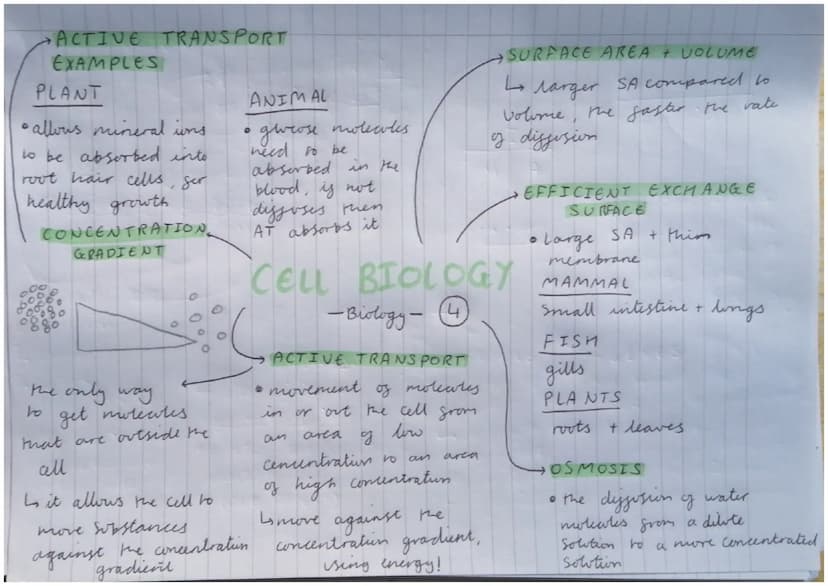 ACTIVE TRANSPORT
EXAMPLES
PLANT
• allows mineral ions
to be absorbed into
root hair cells, for
healthy growth
ANIMAL
• glucose molecules
need to be
absorbed in the
blood, if not
diffuses then
AT absorbs it
CONCENTRATION
GRADIENT
SURFACE AREA + VOLUME
↳ larger SA compared to
volume, the faster the rate
of diffusion
EFFICIENT EXCHANGE
SURFACE
• large SA + thin
membrane
MAMMAL
small intestine + lungs
FISH
gills
PLANTS
roots + leaves
CELL BIOLOGY
— Biology — 4
ACTIVE TRANSPORT
• movement of molecules
in or out the cell from
an area of low
concentration to an area
of high concentration
↳ move against the
concentration gradient,
using energy!
the only way
to get molecules
that are outside the
cell
↳ it allows the cell to
move substances
against the concentration
gradient
OSMOSIS
• the diffusion of water
molecules from a dilute
solution to a more concentrated
solution